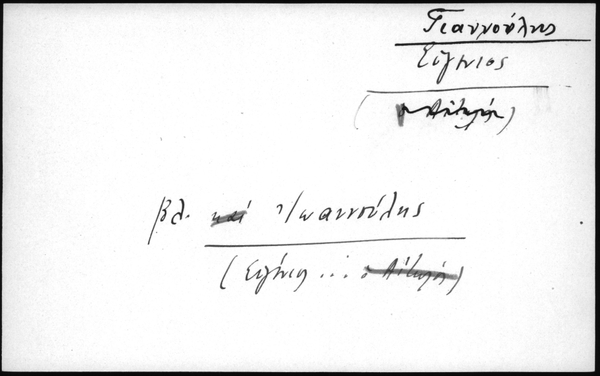 Γιαννούλης
Εὐγένιος
(ὁ Αἰτωλός)
βλ. καὶ Ἰωαννούλης
(Εὐγένιος ... ὁ Αἰτωλός)